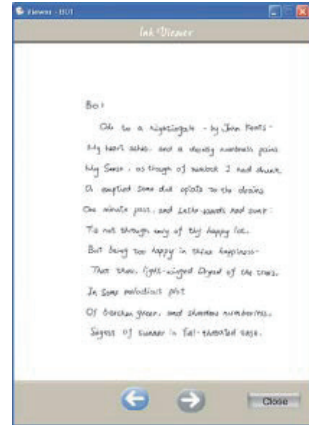 Viewer - B01
Ink Viewer
B01
Ode to a nightingale - by John Keats -
My heart aches, and a drowsy numbness pains
My Sense, as though of hemlock I had drunk
Or emptied some dull opiate to the drains
One minute past, and Lethe-wards had sunk:
'Tis not through envy of thy happy lot.
But being too happy in thine happiness-
That thou, light-winged Dryad of the trees.
In Some melodious plot
Of beechen green, and shadows numberless,
Singest of summer in full-throated ease.
Close